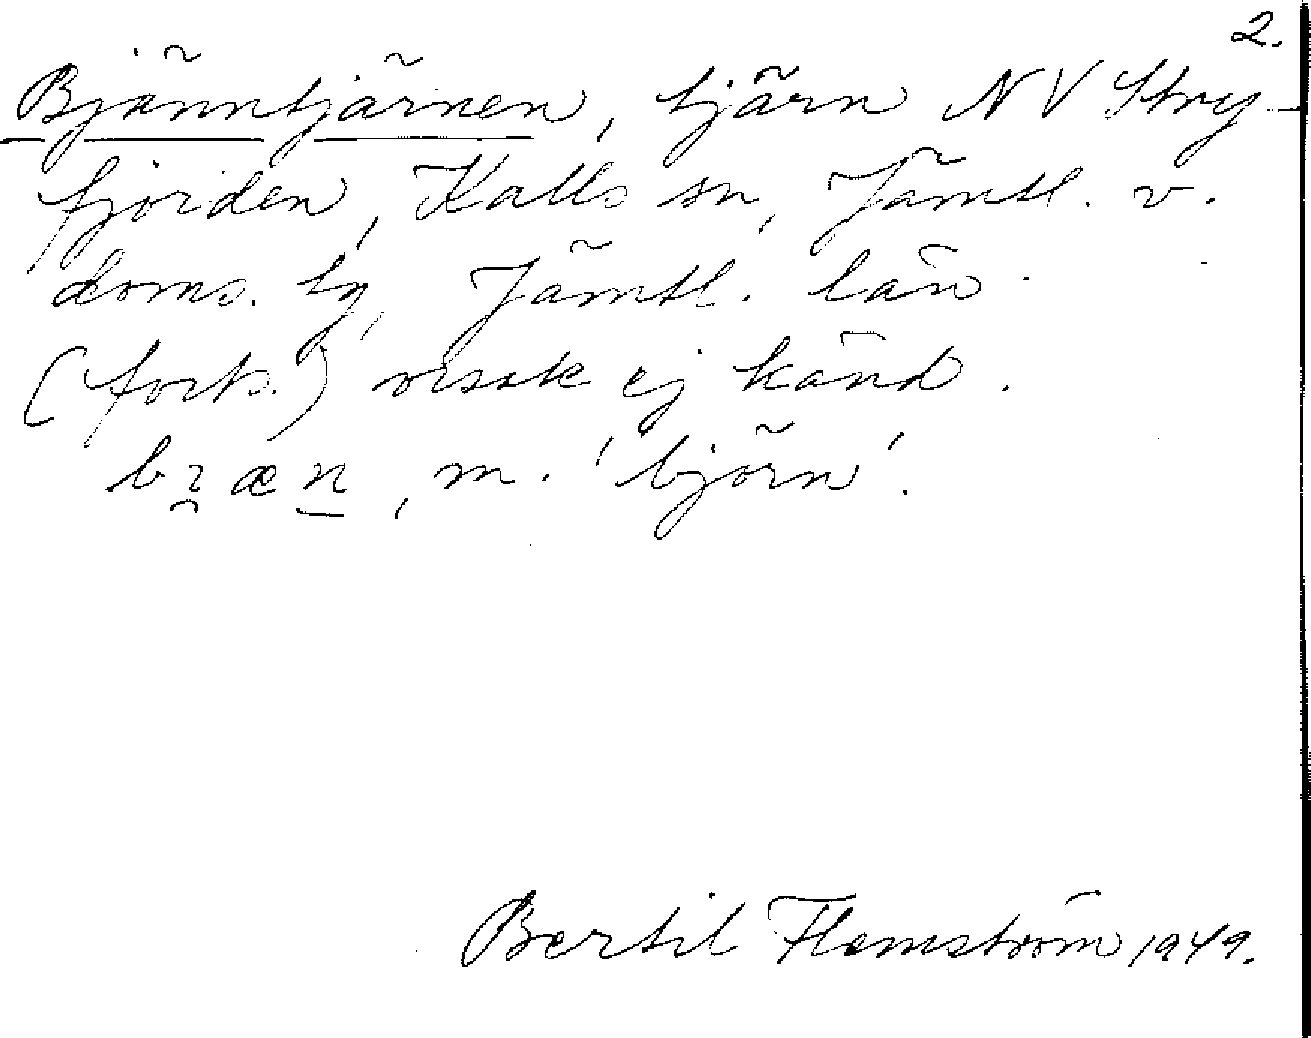 2.
Bjänntjärnen, tjärn NV Stry-
fjorden, Kalls sn, Jämtl. v.
doms. tg, Jämtl. län.
(forts.) orsak ej känd.
bi̯æn̲, m. 'björn'.
Bertil Flemström 1949.